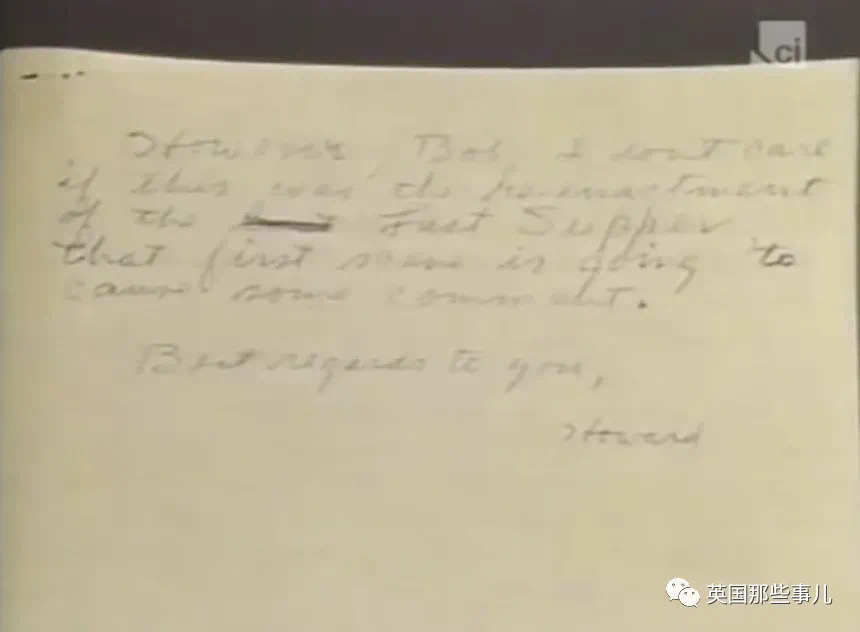 ci
However, Bob, I don't care
if this was the re-enactment
of the Last Supper
that first scene is going to
cause some comment.
Best regards to you,
Howard
英国那些事儿